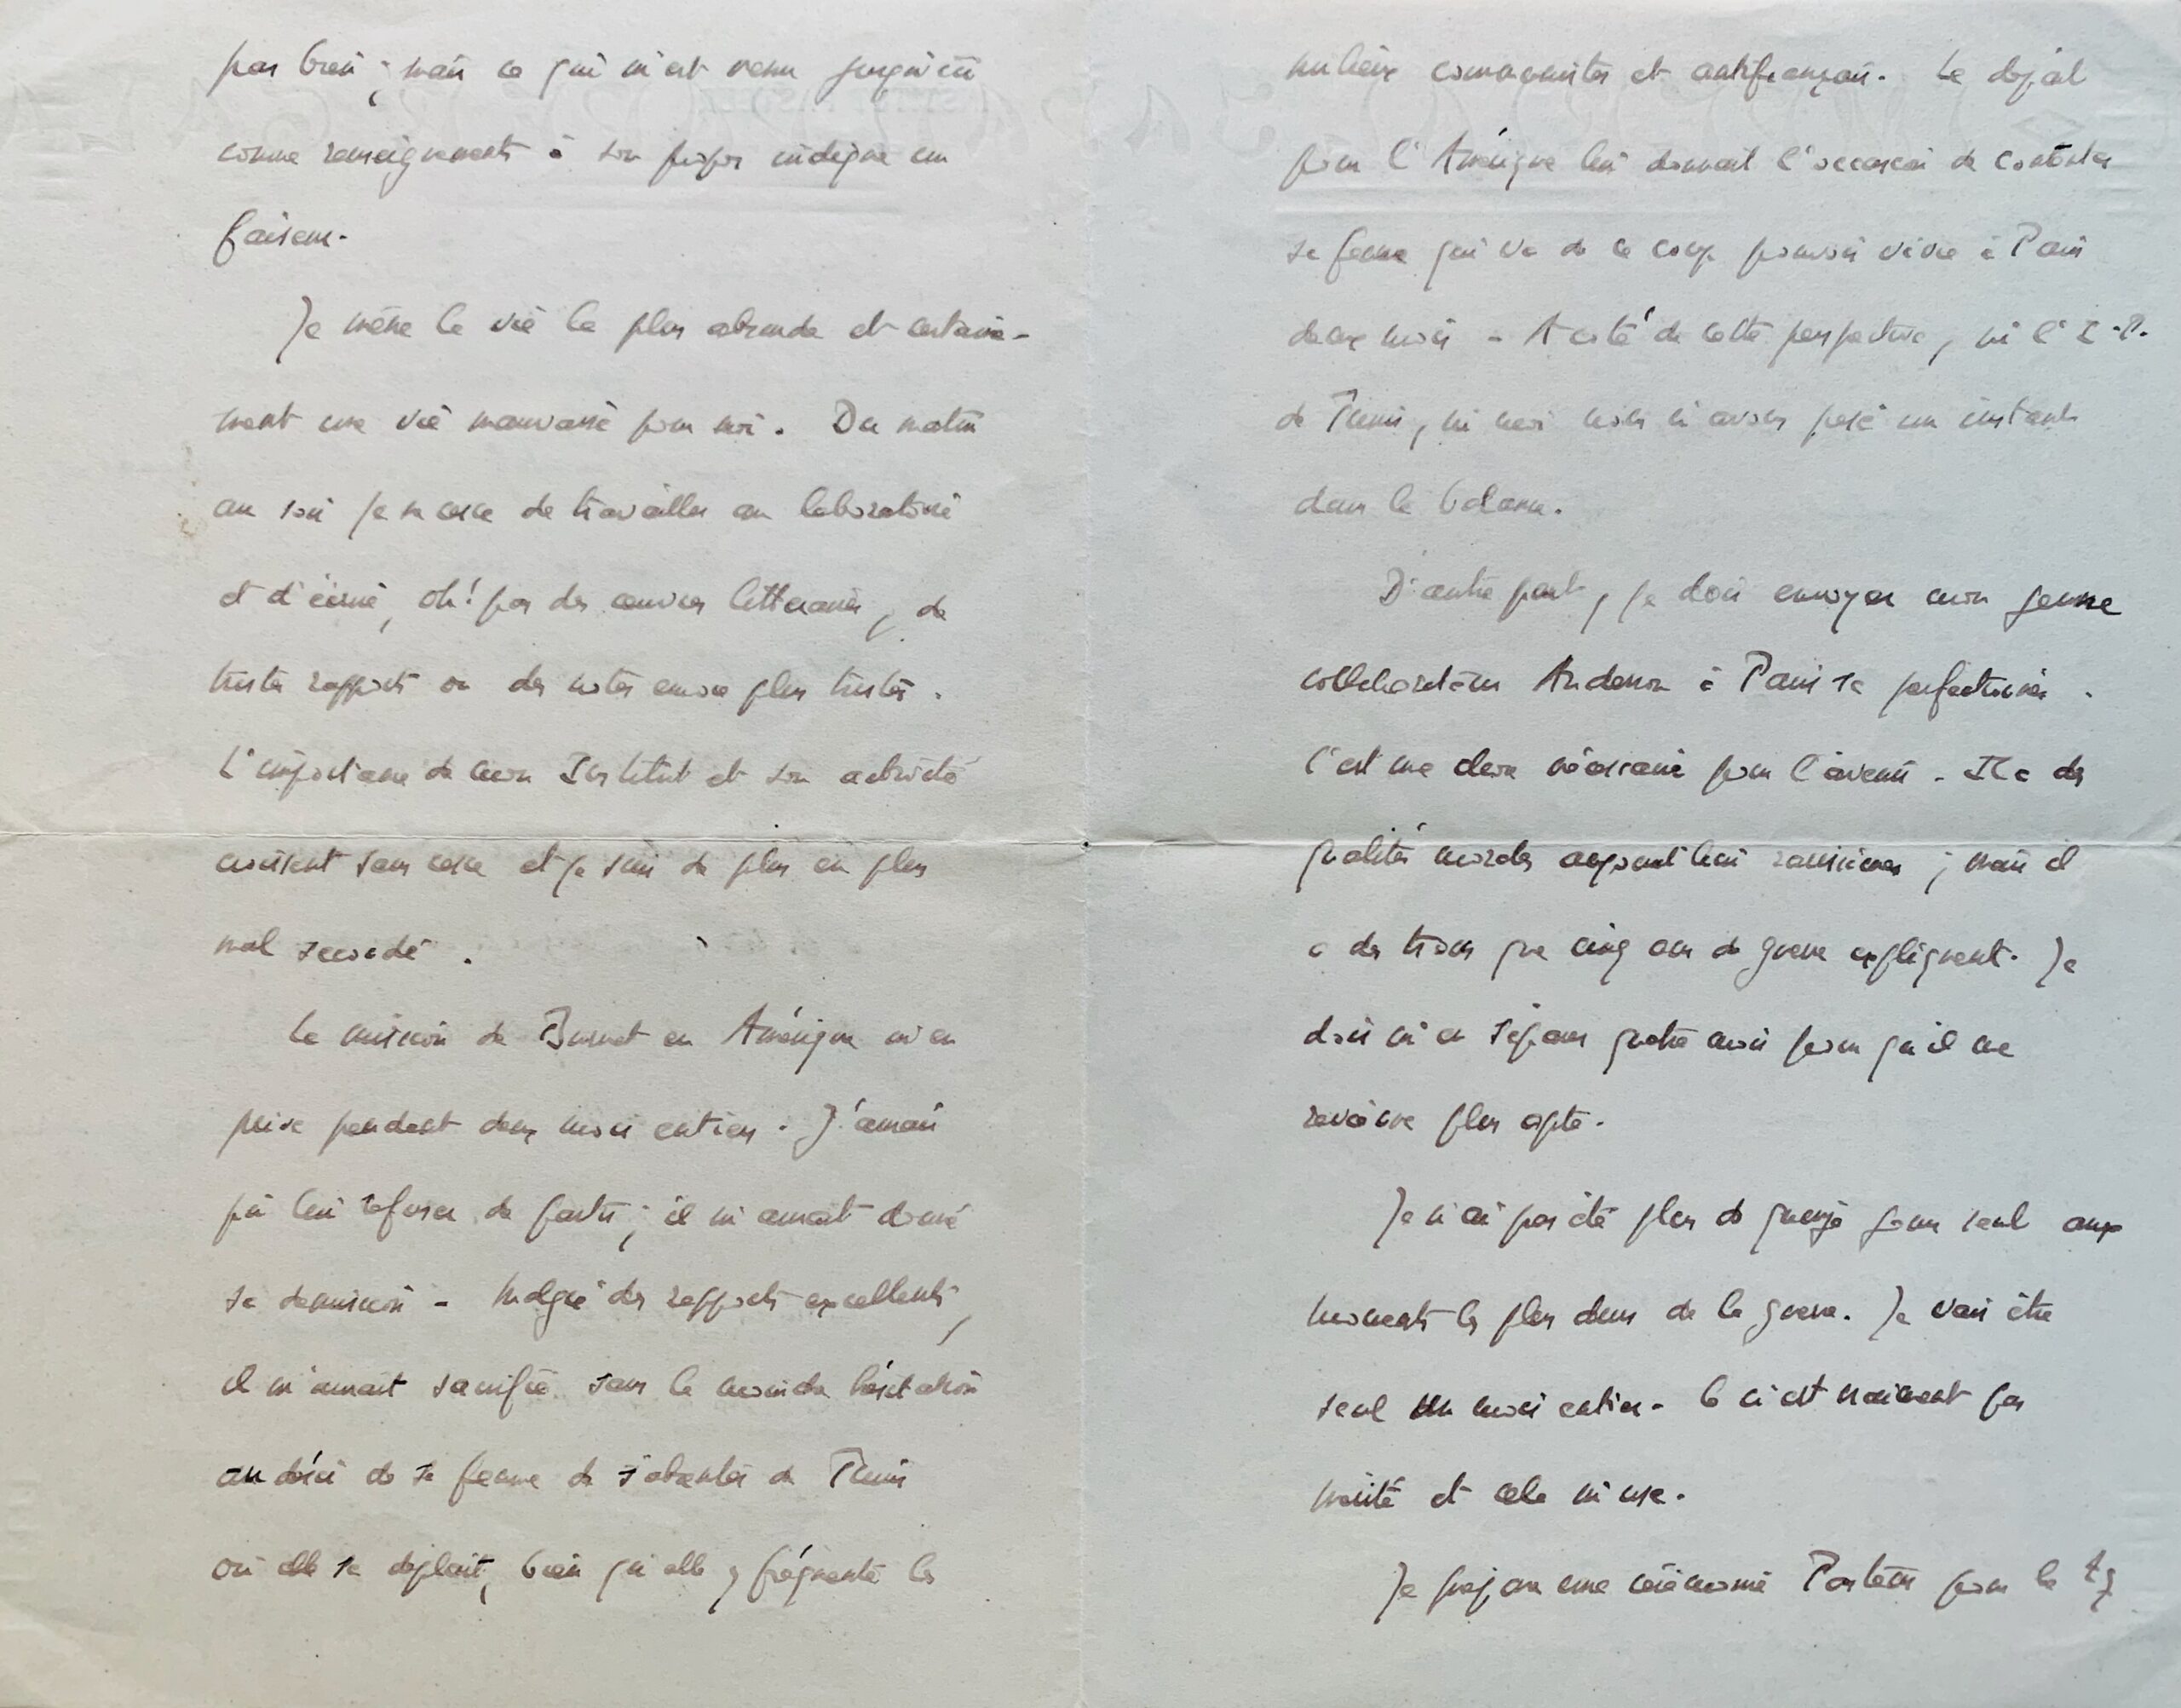 pas bien ; mais ce qui m'est venu jusqu'ici
comme renseignements à son propos indique un
faiseur.
Je mène la vie la plus absurde et certaine-
ment une vie mauvaise pour moi. Du matin
au soir je ne cesse de travailler au laboratoire
et d'écrire, oh! pas des œuvres littéraires, de
tristes rapports ou des notes encore plus tristes.
L'importance de mon Institut et son activité
croissent sans cesse et je suis de plus en plus
mal secondé.
La mission de Burnet en Amérique m'en
prive pendant deux mois entiers. J'aurais
pu lui refuser de partir ; il m'aurait donné
sa démission - Malgré des rapports excellents,
il m'aurait sacrifié sans la moindre hésitation
au désir de sa femme de s'absenter de Tunis
où elle se déplait, bien qu'elle y fréquente les
milieux communistes et antifrançais. Le départ
pour l'Amérique lui donnait l'occasion de contenter
sa femme qui va de ce coup pouvoir vivre à Paris
deux mois - A côté de cette perspective, ni l'I.P.
de Tunis, ni moi nous n'avons pesé un instant
dans la balance.
D'autre part, je dois envoyer mon jeune
collaborateur Anderson à Paris se perfectionner.
C'est une chose nécessaire pour l'avenir - Il a des
qualités morales aujourd'hui rarissimes ; mais il
a des trous que cinq ans de guerre expliquent. Je
dois m'en séparer quatre mois pour qu'il me
revienne plus apte.
Je n'ai pas été plus de quinze jours seul aux
moments les plus durs de la guerre. Je vais être
seul un mois entier - Ce n'est vraiment pas
mérité et cela m'use.
Je prépare une cérémonie Pasteur pour le